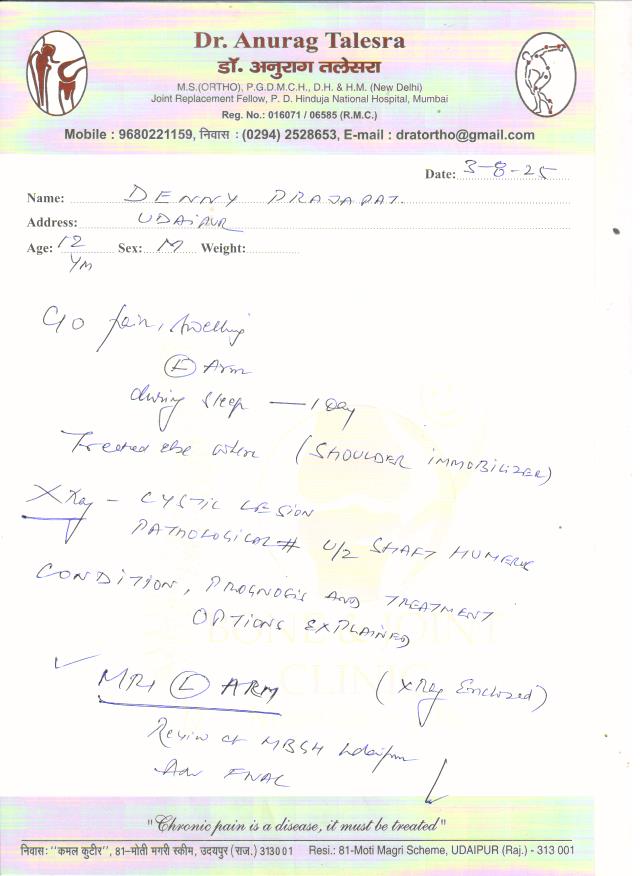 Dr. Anurag Talesra
डॉ. अनुराग तलेसरा
M.S.(ORTHO), P.G.D.M.C.H., D.H. & H.M. (New Delhi)
Joint Replacement Fellow, P. D. Hinduja National Hospital, Mumbai
Reg. No.: 016071 / 06585 (R.M.C.)
Mobile : 9680221159, निवास : (0294) 2528653, E-mail : dratortho@gmail.com
Date: 3-8-25
Name: DENNY PRAJAPAT.
Address: UDAIPUR
Age: 12 Sex: M Weight:
Ym
C/o pain, swelling
(L) Arm
during sleep — 1 Day
Treated else where (SHOULDER IMMOBILIZER)
XRay - CYSTIC LESION
PATHOLOGICAL # U/2 SHAFT HUMERUS
CONDITION, PROGNOSIS AND TREATMENT
OPTIONS EXPLAINED
BONE & JOINT
CLINIC
✓ MRI (L) ARM (XRay Enclosed)
Review at MBGH Udaipur
Adv FNAC
"Chronic pain is a disease, it must be treated"
निवास: "कमल कुटीर", 81-मोती मगरी स्कीम, उदयपुर (राज.) 313001 Resi.: 81-Moti Magri Scheme, UDAIPUR (Raj.) - 313 001